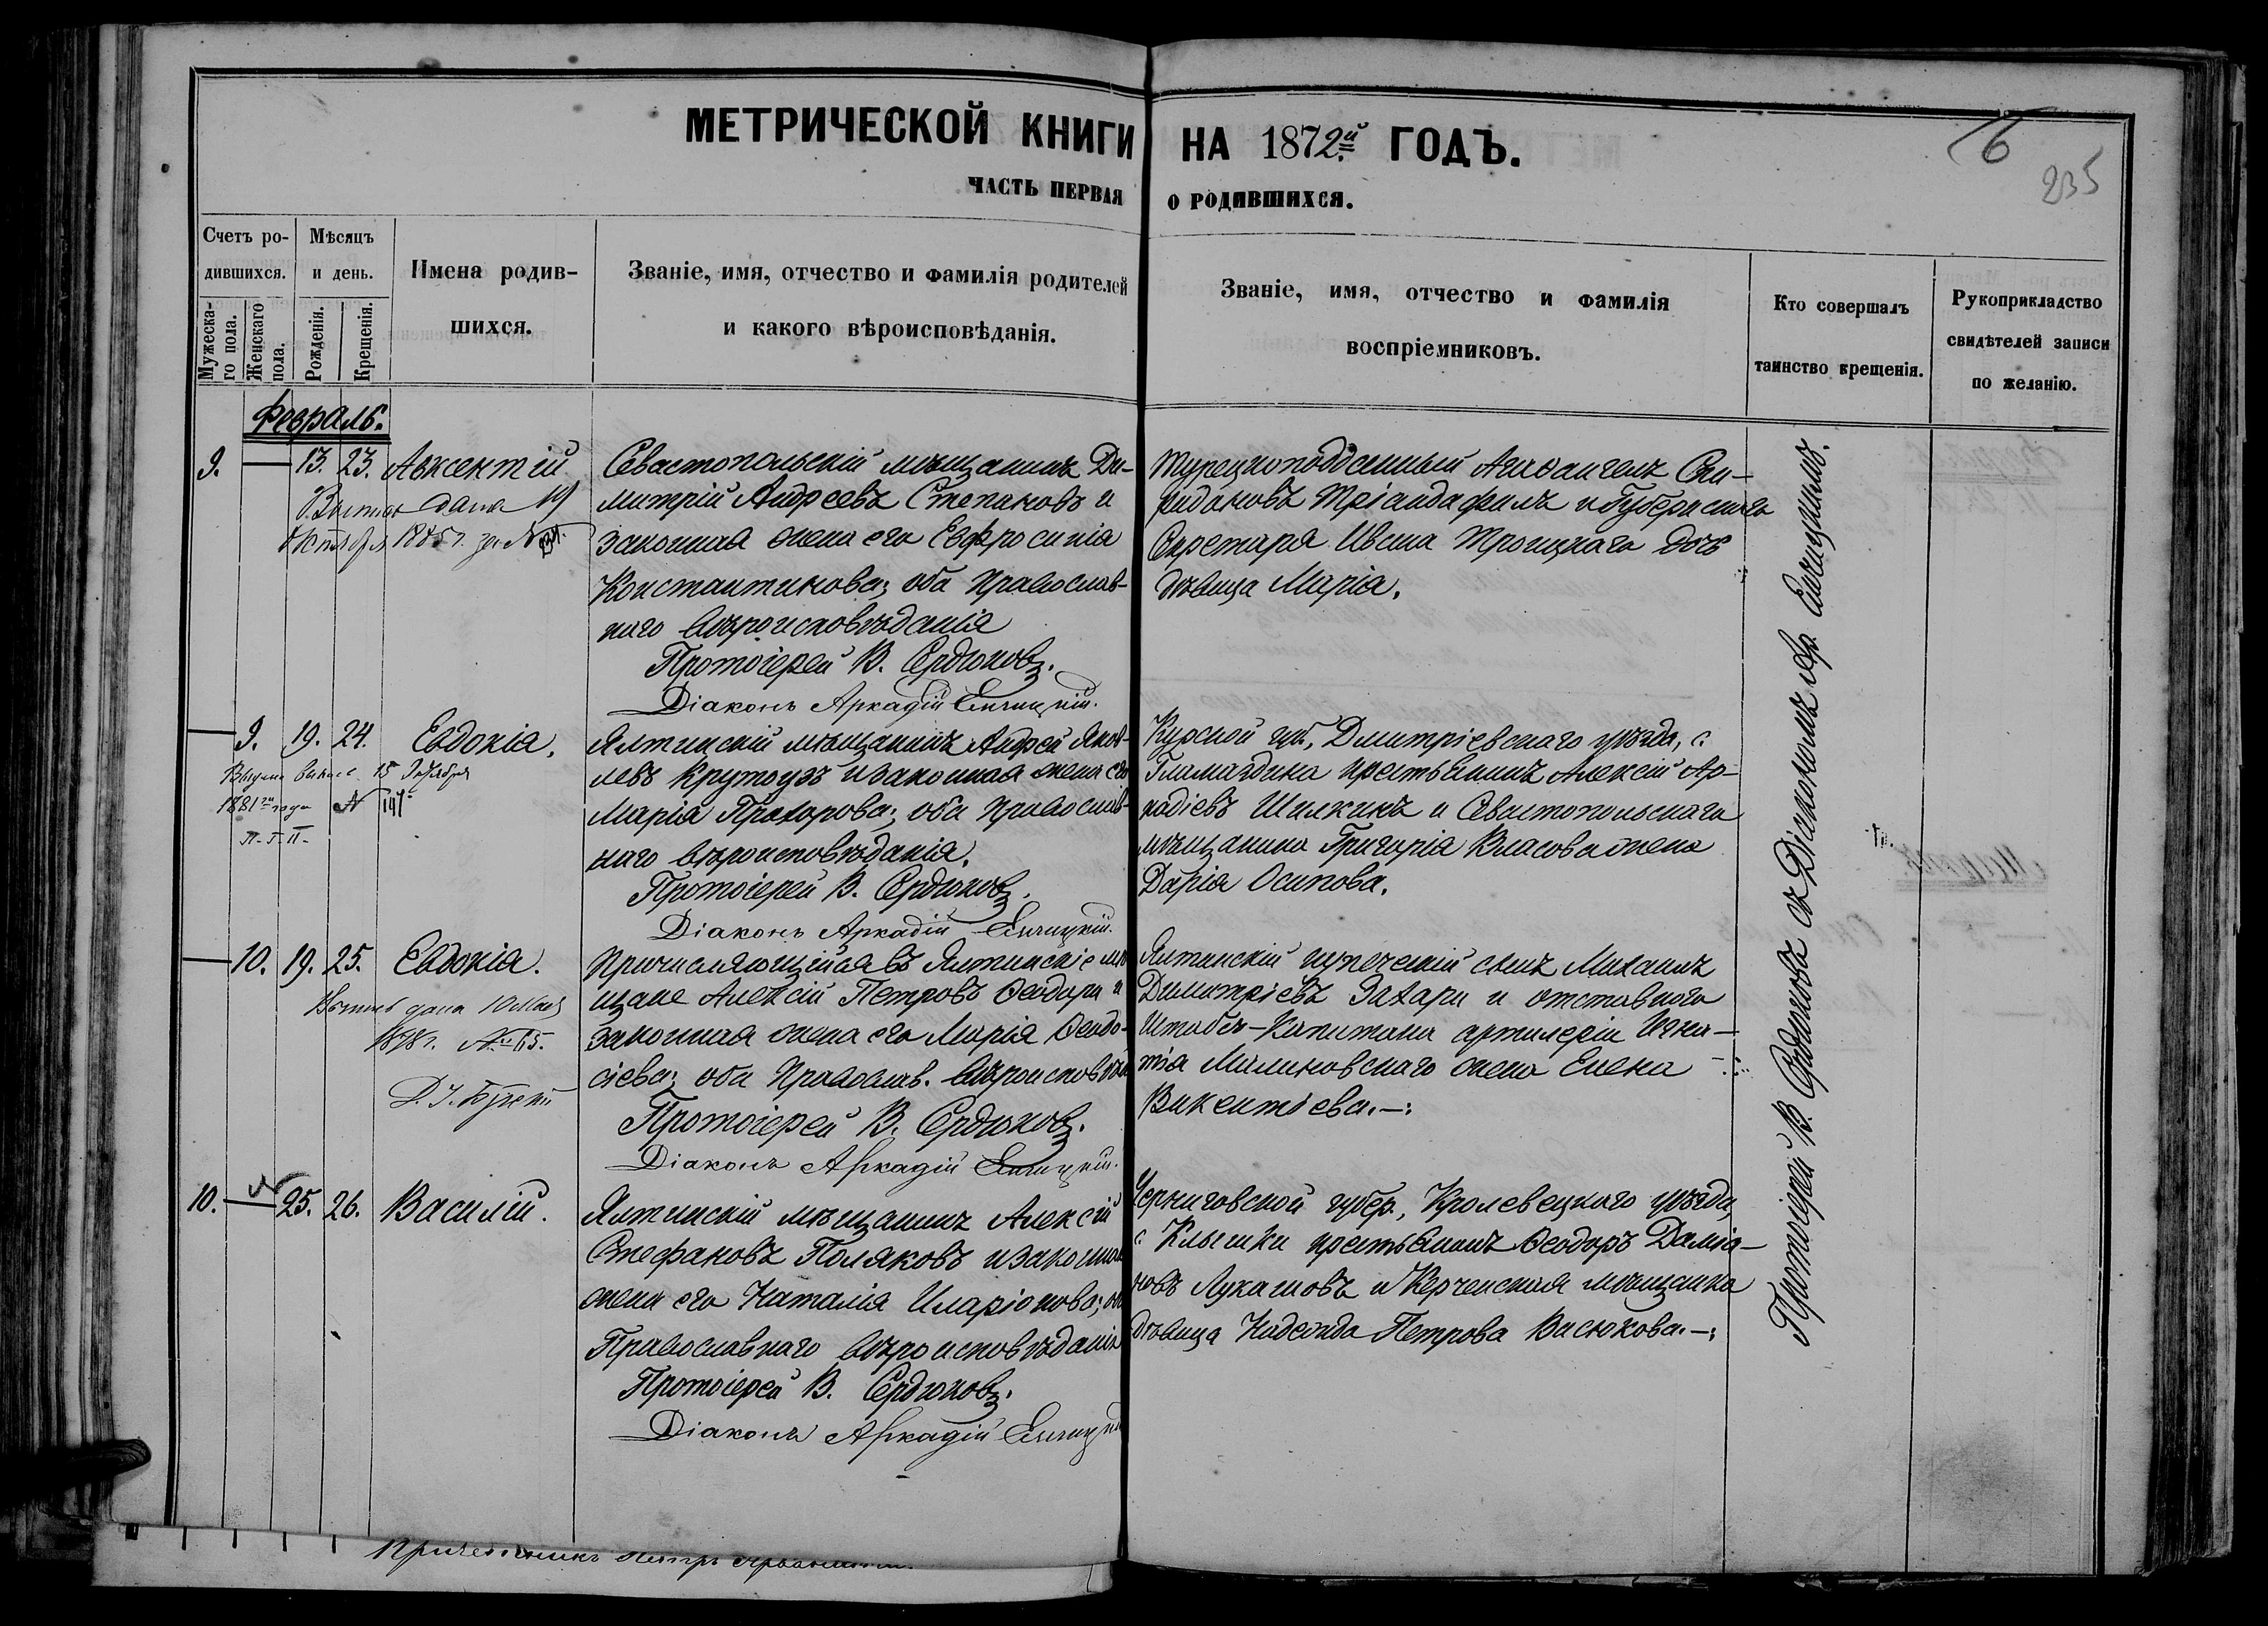 МЕТРИЧЕСКОЙ КНИГИ НА 1872й ГОДЪ.
6
235
ЧАСТЬ ПЕРВАЯ О РОДИВШИХСЯ.
Счетъ ро-
дившихся.
Мужеска-
го пола.
Женскаго
пола.
Мѣсяцъ
и день.
Рожденія.
Крещенія.
Имена родив-
шихся.
Званіе, имя, отчество и фамилія родителей
и какого вѣроисповѣданія.
Званіе, имя, отчество и фамилія
воспріемниковъ.
Кто совершалъ
таинство крещенія.
Рукоприкладство
свидѣтелей записи
по желанію.
Февраль.
9. — 13. 23. Авксентій
дана 19
1885 г. за №
Севастопольскій мѣщанинъ Ди-
митрій Андреевъ Степановъ и
законная жена его Евфросинія
Константинова; оба Православ-
наго вѣроисповѣданія
Протоіерей В. Сердюковъ.
Діаконъ Аркадій
Турецкоподданный Архангелъ Спи-
ридоновъ Тріандафилъ и Губернскаго
Секретаря Ивана Троицкаго дочь
дѣвица Марія.
— 9. 19. 24. Евдокія.
15 Октября
1881го года №
П. Г. П.
Ялтинскій мѣщанинъ Андрей Яков-
левъ Крутоузъ и законная жена его
Марія Прохорова; оба Православ-
наго вѣроисповѣданія.
Протоіерей В. Сердюковъ.
Діаконъ Аркадій
Курской губ., Дмитріевскаго уѣзда, с.
крестьянинъ Алексій Ар-
кадіевъ Шилкинъ и Севастопольскаго
мѣщанина Григорія Власова жена
Дарія Осипова.
— 10. 19. 25. Евдокія.
дана 10 Мая
1878 г. № 65.
Причисляющійся въ Ялтинскіе мѣ
щане Алексій Петровъ Ѳеодори и
законная жена его Марія Ѳеодо-
сіева; оба Православ. вѣроисповѣда
Протоіерей В. Сердюковъ.
Діаконъ Аркадій
Ялтинскій купеческій сынъ Михаилъ
Димитріевъ Захари и отставнаго
Штабсъ-Капитана артилеріи Игна-
тія Милиновскаго жена Елена
Викентіева.—:
10. — 25. 26. Василій.
Ялтинскій мѣщанинъ Алексій
Стефановъ Поляковъ и законная
жена его Наталія Иларіонова; оба
Православнаго вѣроисповѣданія
Протоіерей В. Сердюковъ.
Діаконъ Аркадій
Черниговской губер., Кролевецкаго уѣзда,
с. Клышки крестьянинъ Ѳеодоръ Даміа-
новъ Лукашовъ и Керченская мѣщанка
дѣвица Надежда Петрова Васюкова.—:
Протоіерей В. Сердюковъ съ Діакономъ Ар.